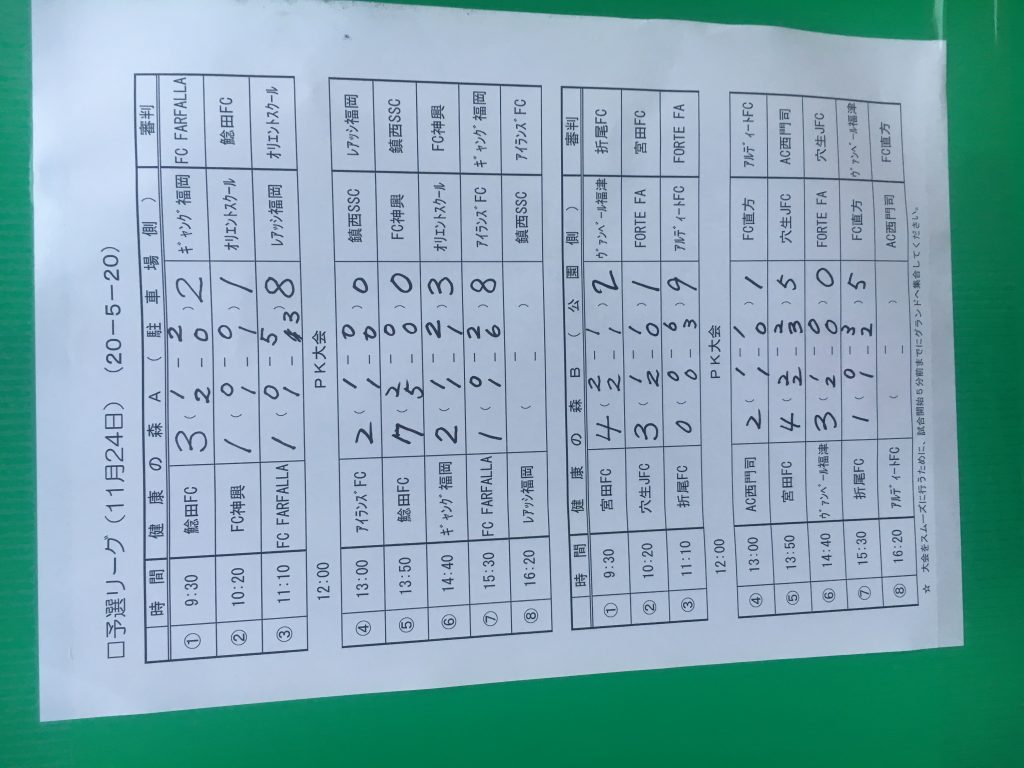 □予選リーグ（11月24日）（20-5-20）
時間 健康の森A（駐車場側） 審判
① 9:30 鯰田FC 3 ( 1 - 2 2 - 0 ) 2 ギャング福岡 FC FARFALLA
② 10:20 FC神興 1 ( 0 - 0 1 - 1 ) 1 オリエントスクール 鯰田FC
③ 11:10 FC FARFALLA 1 ( 0 - 5 1 - 3 ) 8 レアッシ福岡 オリエントスクール
12:00 PK大会
④ 13:00 アイランズFC 2 ( 1 - 0 1 - 0 ) 0 鎮西SSC レアッシ福岡
⑤ 13:50 鯰田FC 7 ( 2 - 0 5 - 0 ) 0 FC神興 鎮西SSC
⑥ 14:40 ギャング福岡 2 ( 1 - 2 1 - 1 ) 3 オリエントスクール FC神興
⑦ 15:30 FC FARFALLA 1 ( 0 - 2 1 - 6 ) 8 アイランズFC ギャング福岡
⑧ 16:20 レアッシ福岡 ( - - ) 鎮西SSC アイランズFC
時間 健康の森B（公園側） 審判
① 9:30 宮田FC 4 ( 2 - 1 2 - 1 ) 2 ヴァンベール福津 折尾FC
② 10:20 穴生JFC 3 ( 1 - 1 2 - 0 ) 1 FORTE FA 宮田FC
③ 11:10 折尾FC 0 ( 0 - 6 0 - 3 ) 9 アルディートFC FORTE FA
12:00 PK大会
④ 13:00 AC西門司 2 ( 1 - 1 1 - 0 ) 1 FC直方 アルディートFC
⑤ 13:50 宮田FC 4 ( 2 - 2 2 - 3 ) 5 穴生JFC AC西門司
⑥ 14:40 ヴァンベール福津 3 ( 1 - 0 2 - 0 ) 0 FORTE FA 穴生JFC
⑦ 15:30 折尾FC 1 ( 0 - 3 1 - 2 ) 5 FC直方 ヴァンベール福津
⑧ 16:20 アルディートFC ( - - ) AC西門司 FC直方
☆ 大会をスムーズに行うために、試合開始5分前までにグランドへ集合してください。